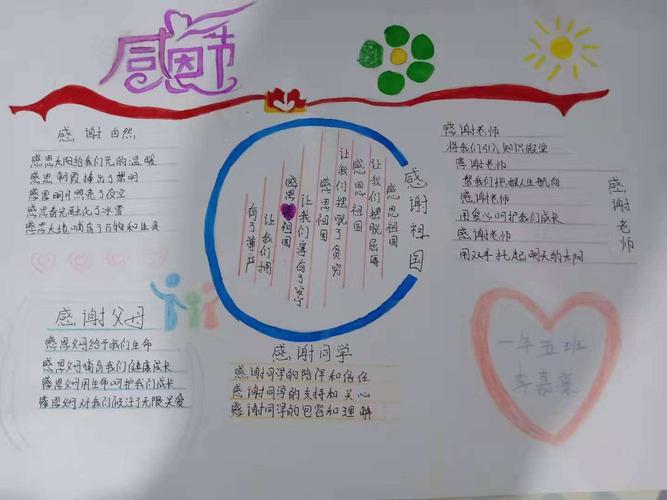 感恩节
感谢自然
感恩太阳给我们光的温暖
感恩朝霞捧出了黎明
感恩明月照亮了夜空
感恩春光融化了冰雪
感恩大地哺育了万物和生灵
感谢父母
感恩父母给予我们生命
感恩父母哺育我们健康成长
感恩父母用生命呵护我们成长
感恩父母对我们倾注了无限关爱
感谢祖国
感恩祖国
让我们摆脱屈辱
感恩祖国
让我们摆脱了贪穷
感恩祖国
让我们享有了安宁
感恩祖国
让我们拥
有了尊严
感谢同学
感谢同学的陪伴和信任
感谢同学的支持和关心
感谢同学的包容和理解
感谢老师
感谢老师
将我们引入知识殿堂
感谢老师
帮我们把握人生航向
感谢老师
用爱心呵护我们成长
感谢老师
用双手托起明天的太阳
一年五班